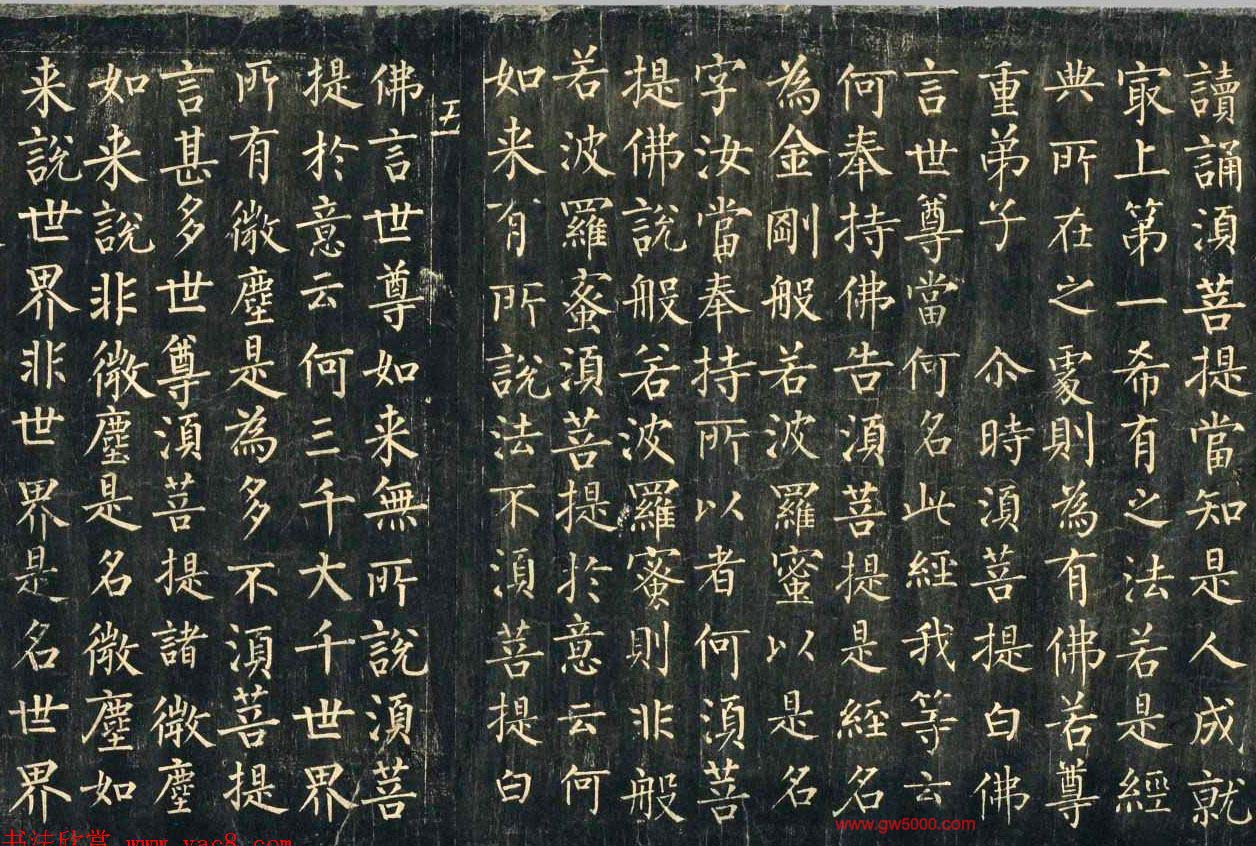 讀誦湏菩提當知是人成就
冣上第一希有之法若是經
典所在之處則為有佛若尊
重弟子 尒時湏菩提白佛
言世尊當何名此經我等云
何奉持佛告湏菩提是經名
為金剛般若波羅蜜以是名
字汝當奉持所以者何湏菩
提佛說般若波羅蜜則非般
若波羅蜜湏菩提於意云何
如来有所說法不湏菩提白
五
佛言世尊如来無所說湏菩
提於意云何三千大千世界
所有微塵是為多不湏菩提
言甚多世尊湏菩提諸微塵
如来說非微塵是名微塵如
来說世界非世界是名世界
www.gw5000.com
书法欣赏 www.yac8.com